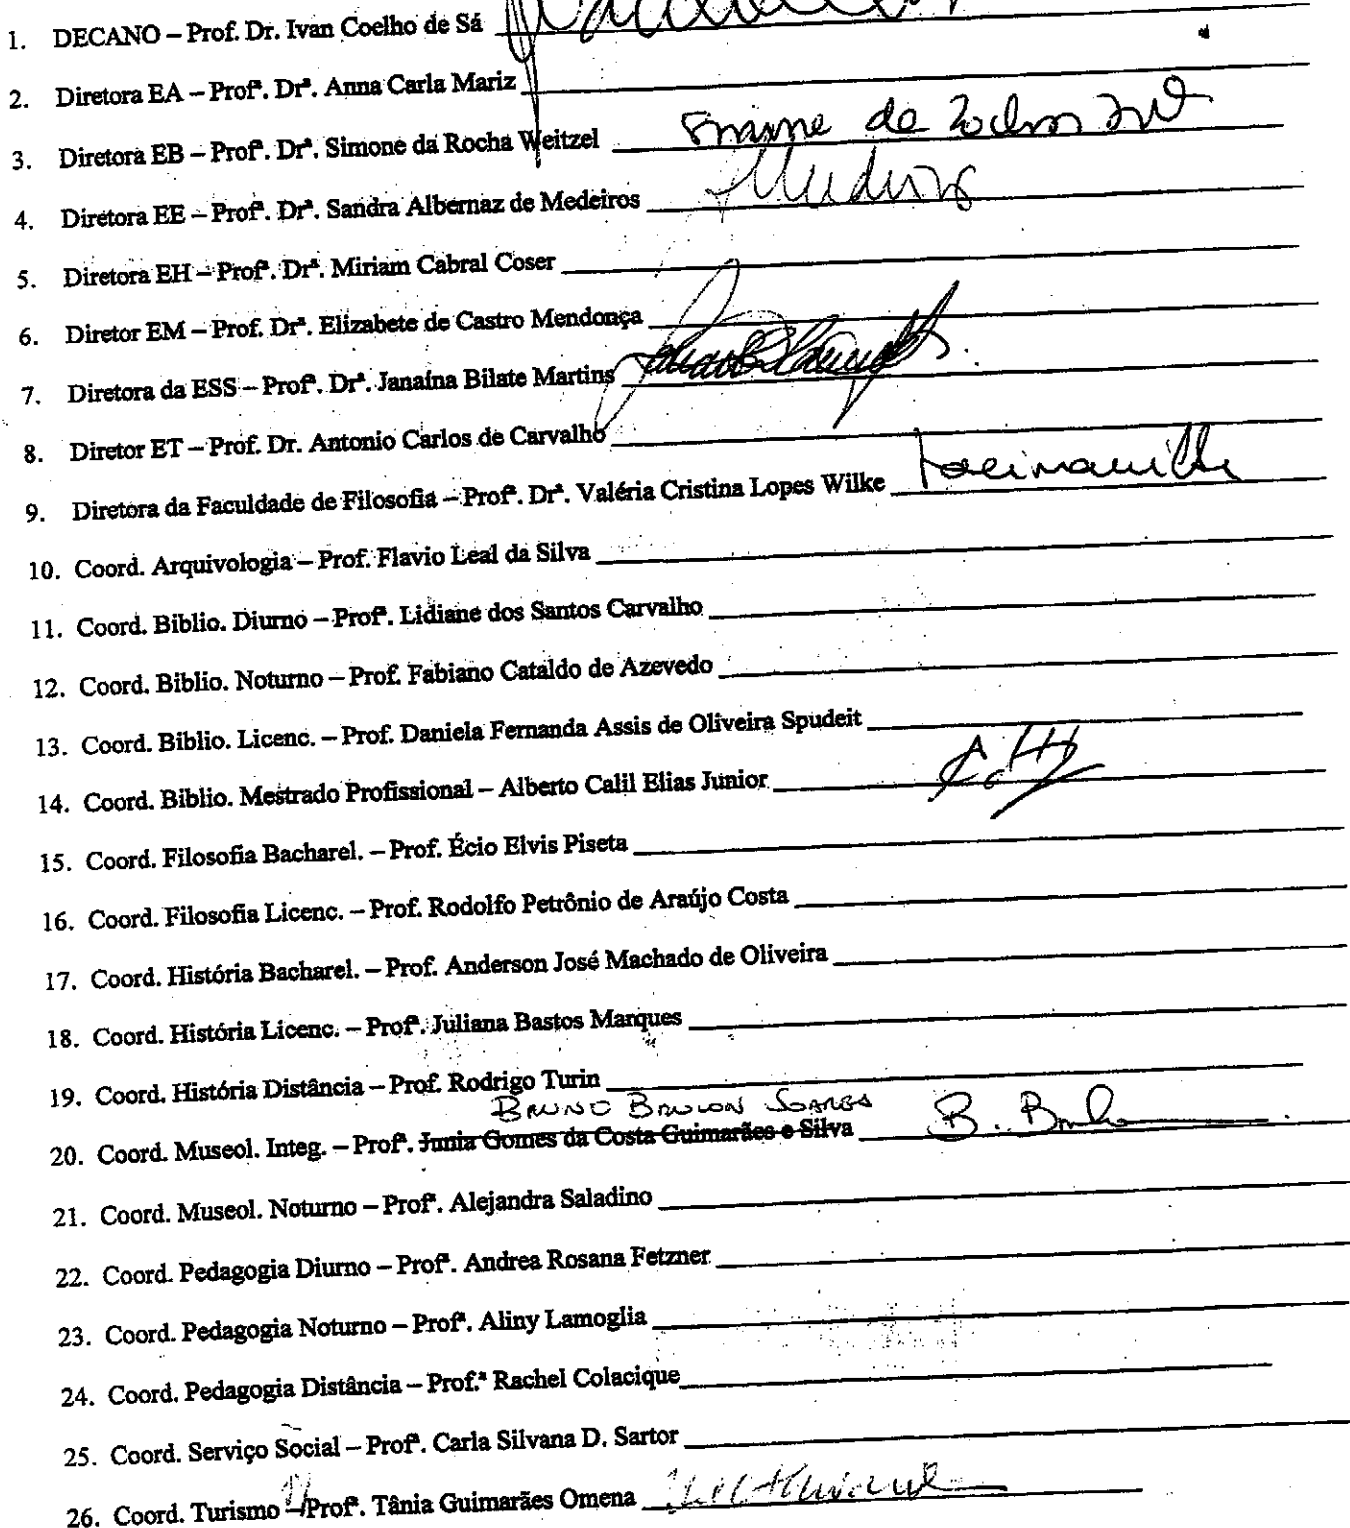 1. DECANO – Prof. Dr. Ivan Coelho de Sá
2. Diretora EA – Profª. Drª. Anna Carla Mariz
3. Diretora EB – Profª. Drª. Simone da Rocha Weitzel
4. Diretora EE – Profª. Drª. Sandra Albernaz de Medeiros
5. Diretora EH – Profª. Drª. Miriam Cabral Coser
6. Diretor EM – Prof. Drª. Elizabete de Castro Mendonça
7. Diretora da ESS – Profª. Drª. Janaína Bilate Martins
8. Diretor ET – Prof. Dr. Antonio Carlos de Carvalho
9. Diretora da Faculdade de Filosofia – Profª. Drª. Valéria Cristina Lopes Wilke
10. Coord. Arquivologia – Prof. Flavio Leal da Silva
11. Coord. Biblio. Diurno – Profª. Lidiane dos Santos Carvalho
12. Coord. Biblio. Noturno – Prof. Fabiano Cataldo de Azevedo
13. Coord. Biblio. Licenc. – Prof. Daniela Fernanda Assis de Oliveira Spudeit
14. Coord. Biblio. Mestrado Profissional – Alberto Calil Elias Junior
15. Coord. Filosofia Bacharel. – Prof. Écio Elvis Piseta
16. Coord. Filosofia Licenc. – Prof. Rodolfo Petrônio de Araújo Costa
17. Coord. História Bacharel. – Prof. Anderson José Machado de Oliveira
18. Coord. História Licenc. – Profª. Juliana Bastos Marques
19. Coord. História Distância – Prof. Rodrigo Turin
BRUNO BRULON SOARES
20. Coord. Museol. Integ. – Profª. Junia Gomes da Costa Guimarães e Silva
21. Coord. Museol. Noturno – Profª. Alejandra Saladino
22. Coord. Pedagogia Diurno – Profª. Andrea Rosana Fetzner
23. Coord. Pedagogia Noturno – Profª. Aliny Lamoglia
24. Coord. Pedagogia Distância – Prof.ª Rachel Colacique
25. Coord. Serviço Social – Profª. Carla Silvana D. Sartor
26. Coord. Turismo – Profª. Tânia Guimarães Omena